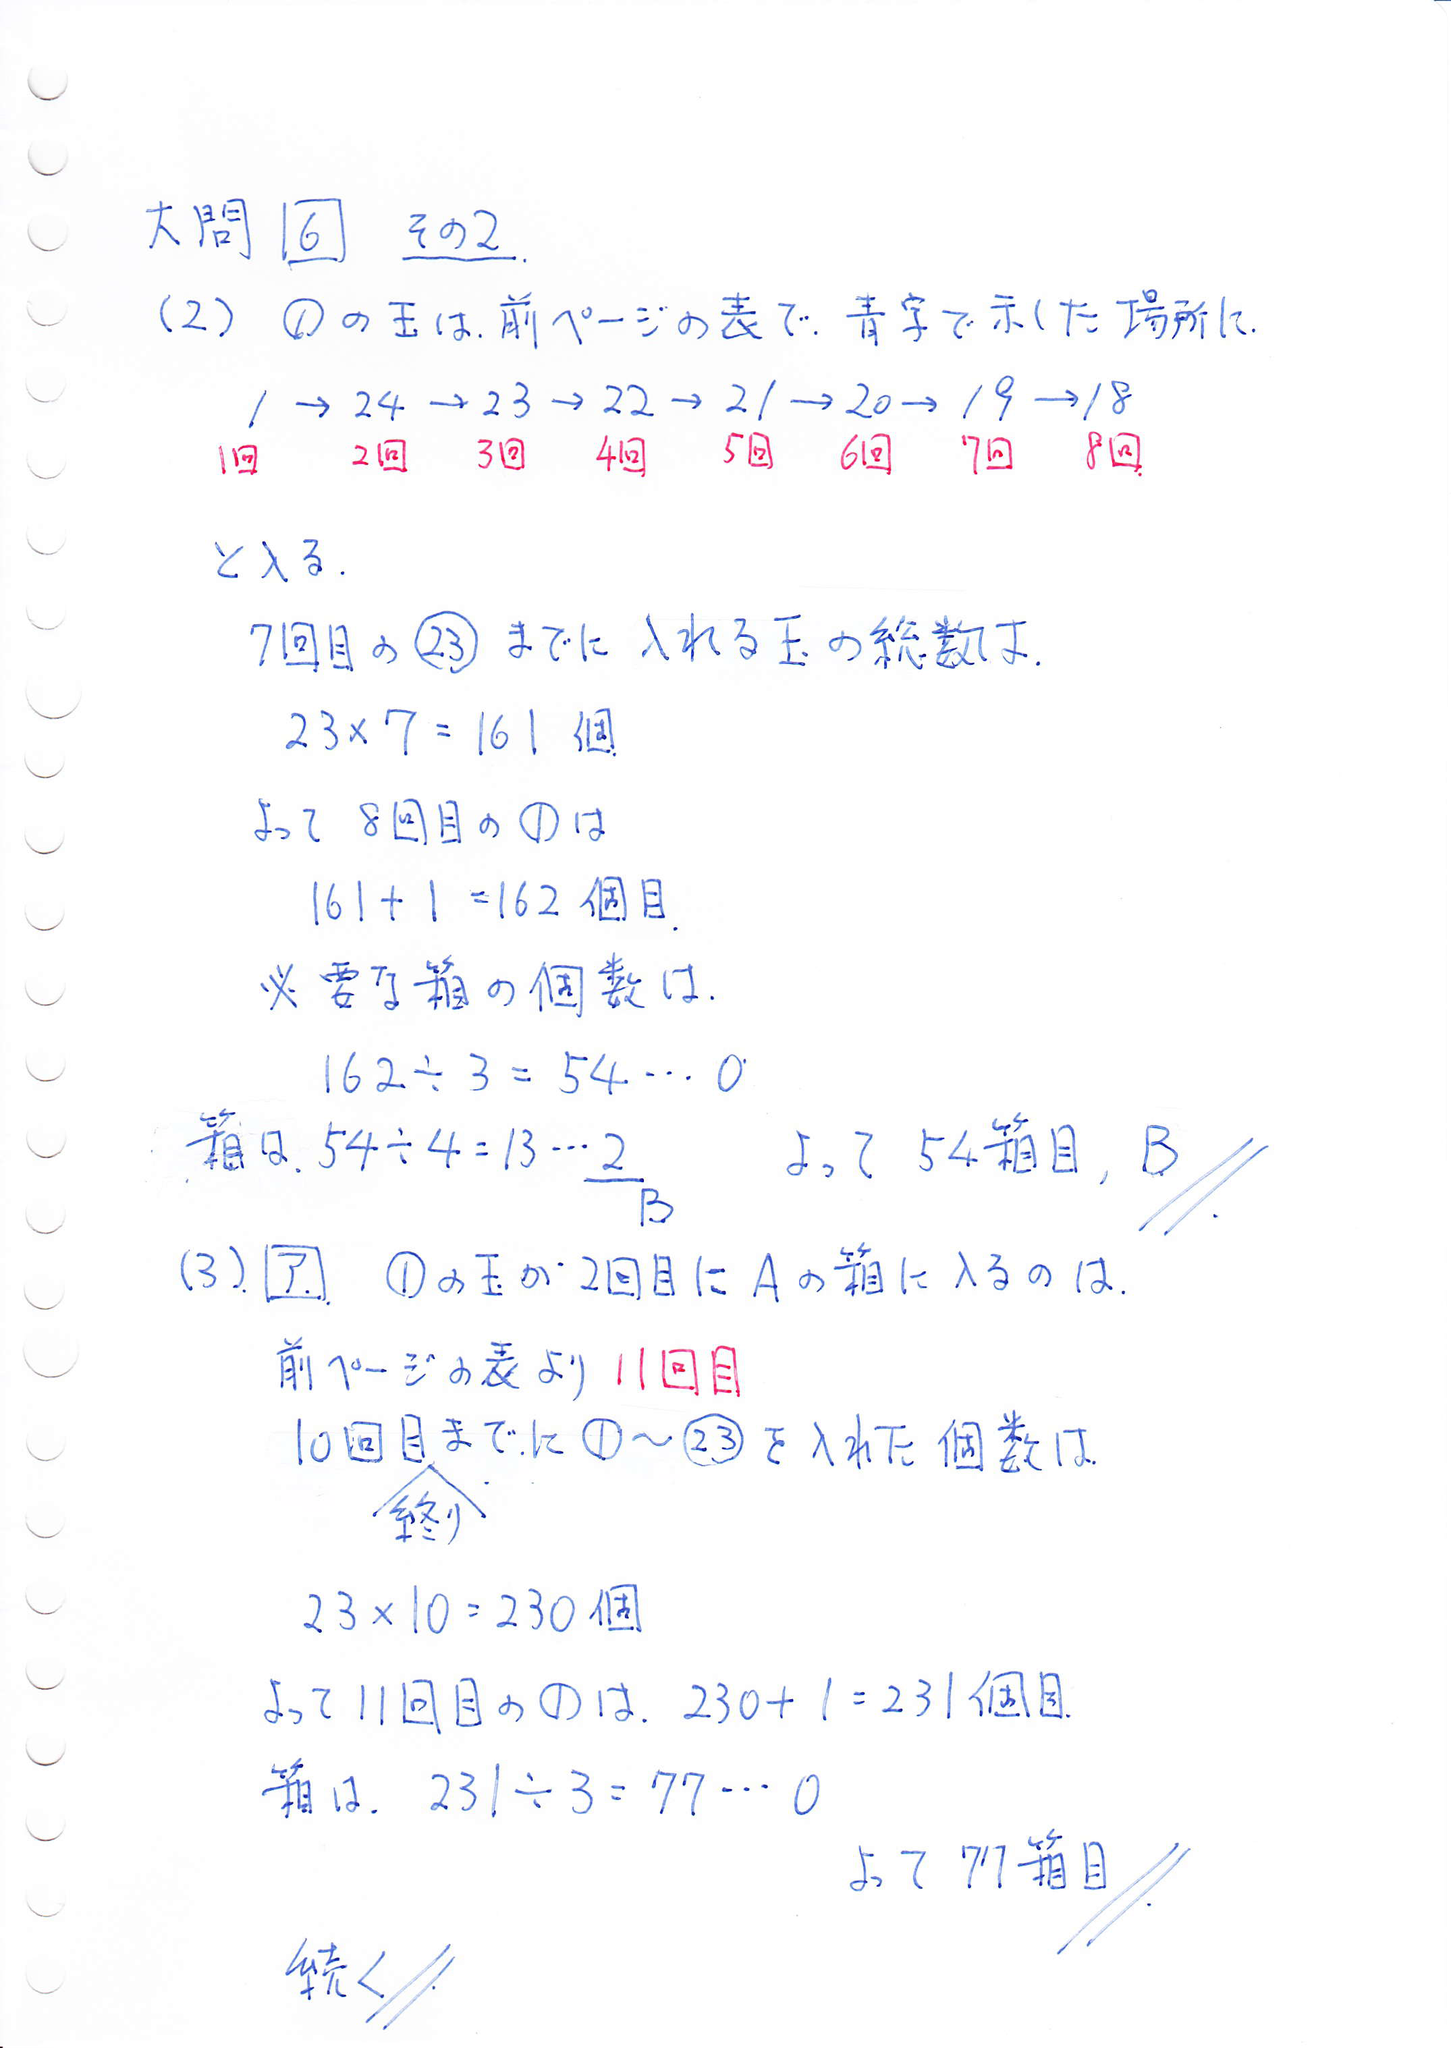 大問 6 その2.
(2) ①の玉は、前ページの表で、青字で示した場所に、
1 → 24 → 23 → 22 → 21 → 20 → 19 → 18
1回 2回 3回 4回 5回 6回 7回 8回
と入る.
7回目の㉓までに入れる玉の総数は、
23×7=161個
よって 8回目の①は
161+1=162個目.
必要な箱の個数は、
162÷3=54…0
箱は、54÷4=13…2 よって 54箱目, B
B
(3) ア. ①の玉が2回目にAの箱に入るのは、
前ページの表より 11回目
10回目までに①〜㉓を入れた個数は
終り
23×10=230個
よって11回目の①は、230+1=231個目.
箱は、231÷3=77…0
よって 77箱目
続く